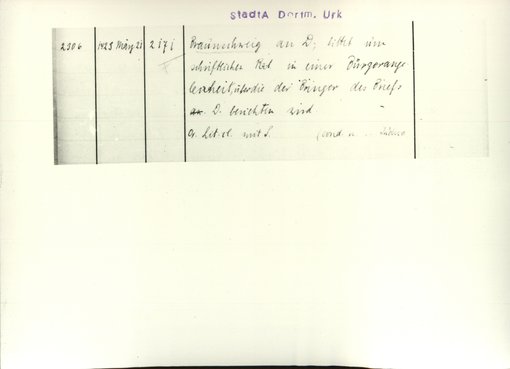 StadtA Dortm. Urk
2306 1423 März 21 2171 Braunschweig an D; bittet um
schriftlichen Rat in einer Bürgerange
legenheit, über die der Bringer des Briefs
D. berichten wird.
Or. lit. cl. mit S.